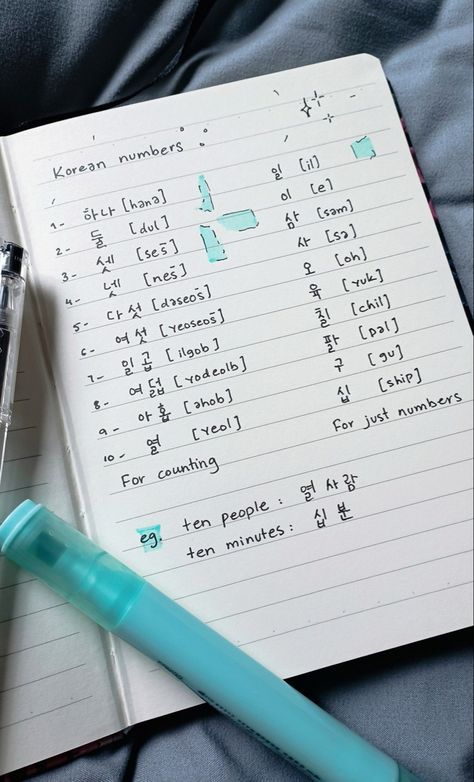 Korean numbers :
1- 하나 [hənə] 일 [il]
2- 둘 [dul] 이 [e]
3- 셋 [ses̄] 삼 [səm]
4- 넷 [nes̄] 사 [sə]
5- 다섯 [dəseos̄] 오 [oh]
6- 여섯 [yeoseos̄] 육 [yuk]
7- 일곱 [ilgob] 칠 [chil]
8- 여덟 [yodeolb] 팔 [pəl]
9- 아홉 [əhob] 구 [gu]
10- 열 [yeol] 십 [ship]
For counting For just numbers
eg. ten people : 열 사람
ten minutes : 십 분